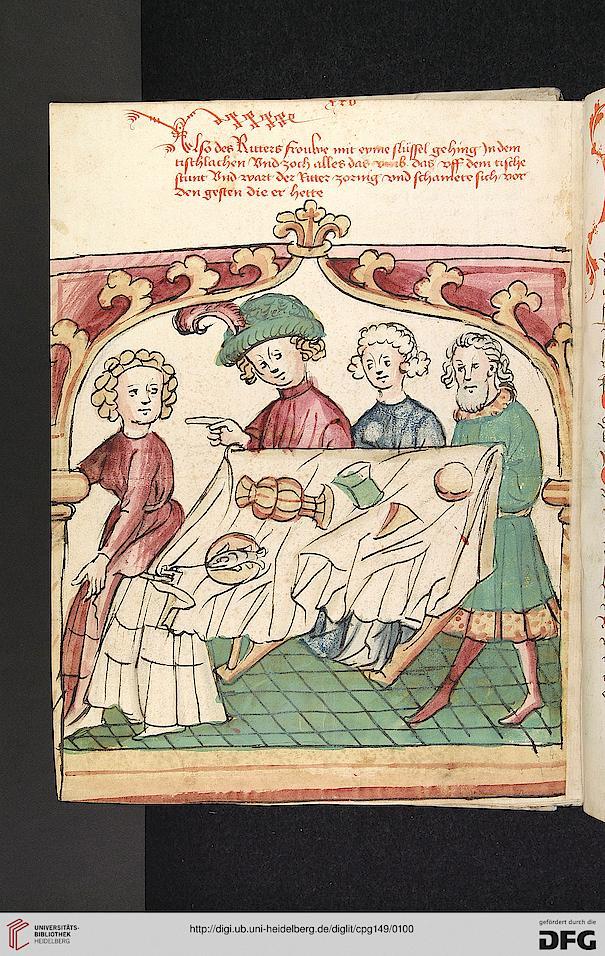 Also des Ritters frouwe mit eyme slüssel gehing Jn dem
tischlachen Vnd zoch alles das das vff dem tische
stunt Vnd wart der Ritter zornig vnd schamete sich vor
den gesten die er hette
UNIVERSITÄTS-
BIBLIOTHEK
HEIDELBERG
http://digi.ub.uni-heidelberg.de/diglit/cpg149/0100
gefördert durch die
DFG